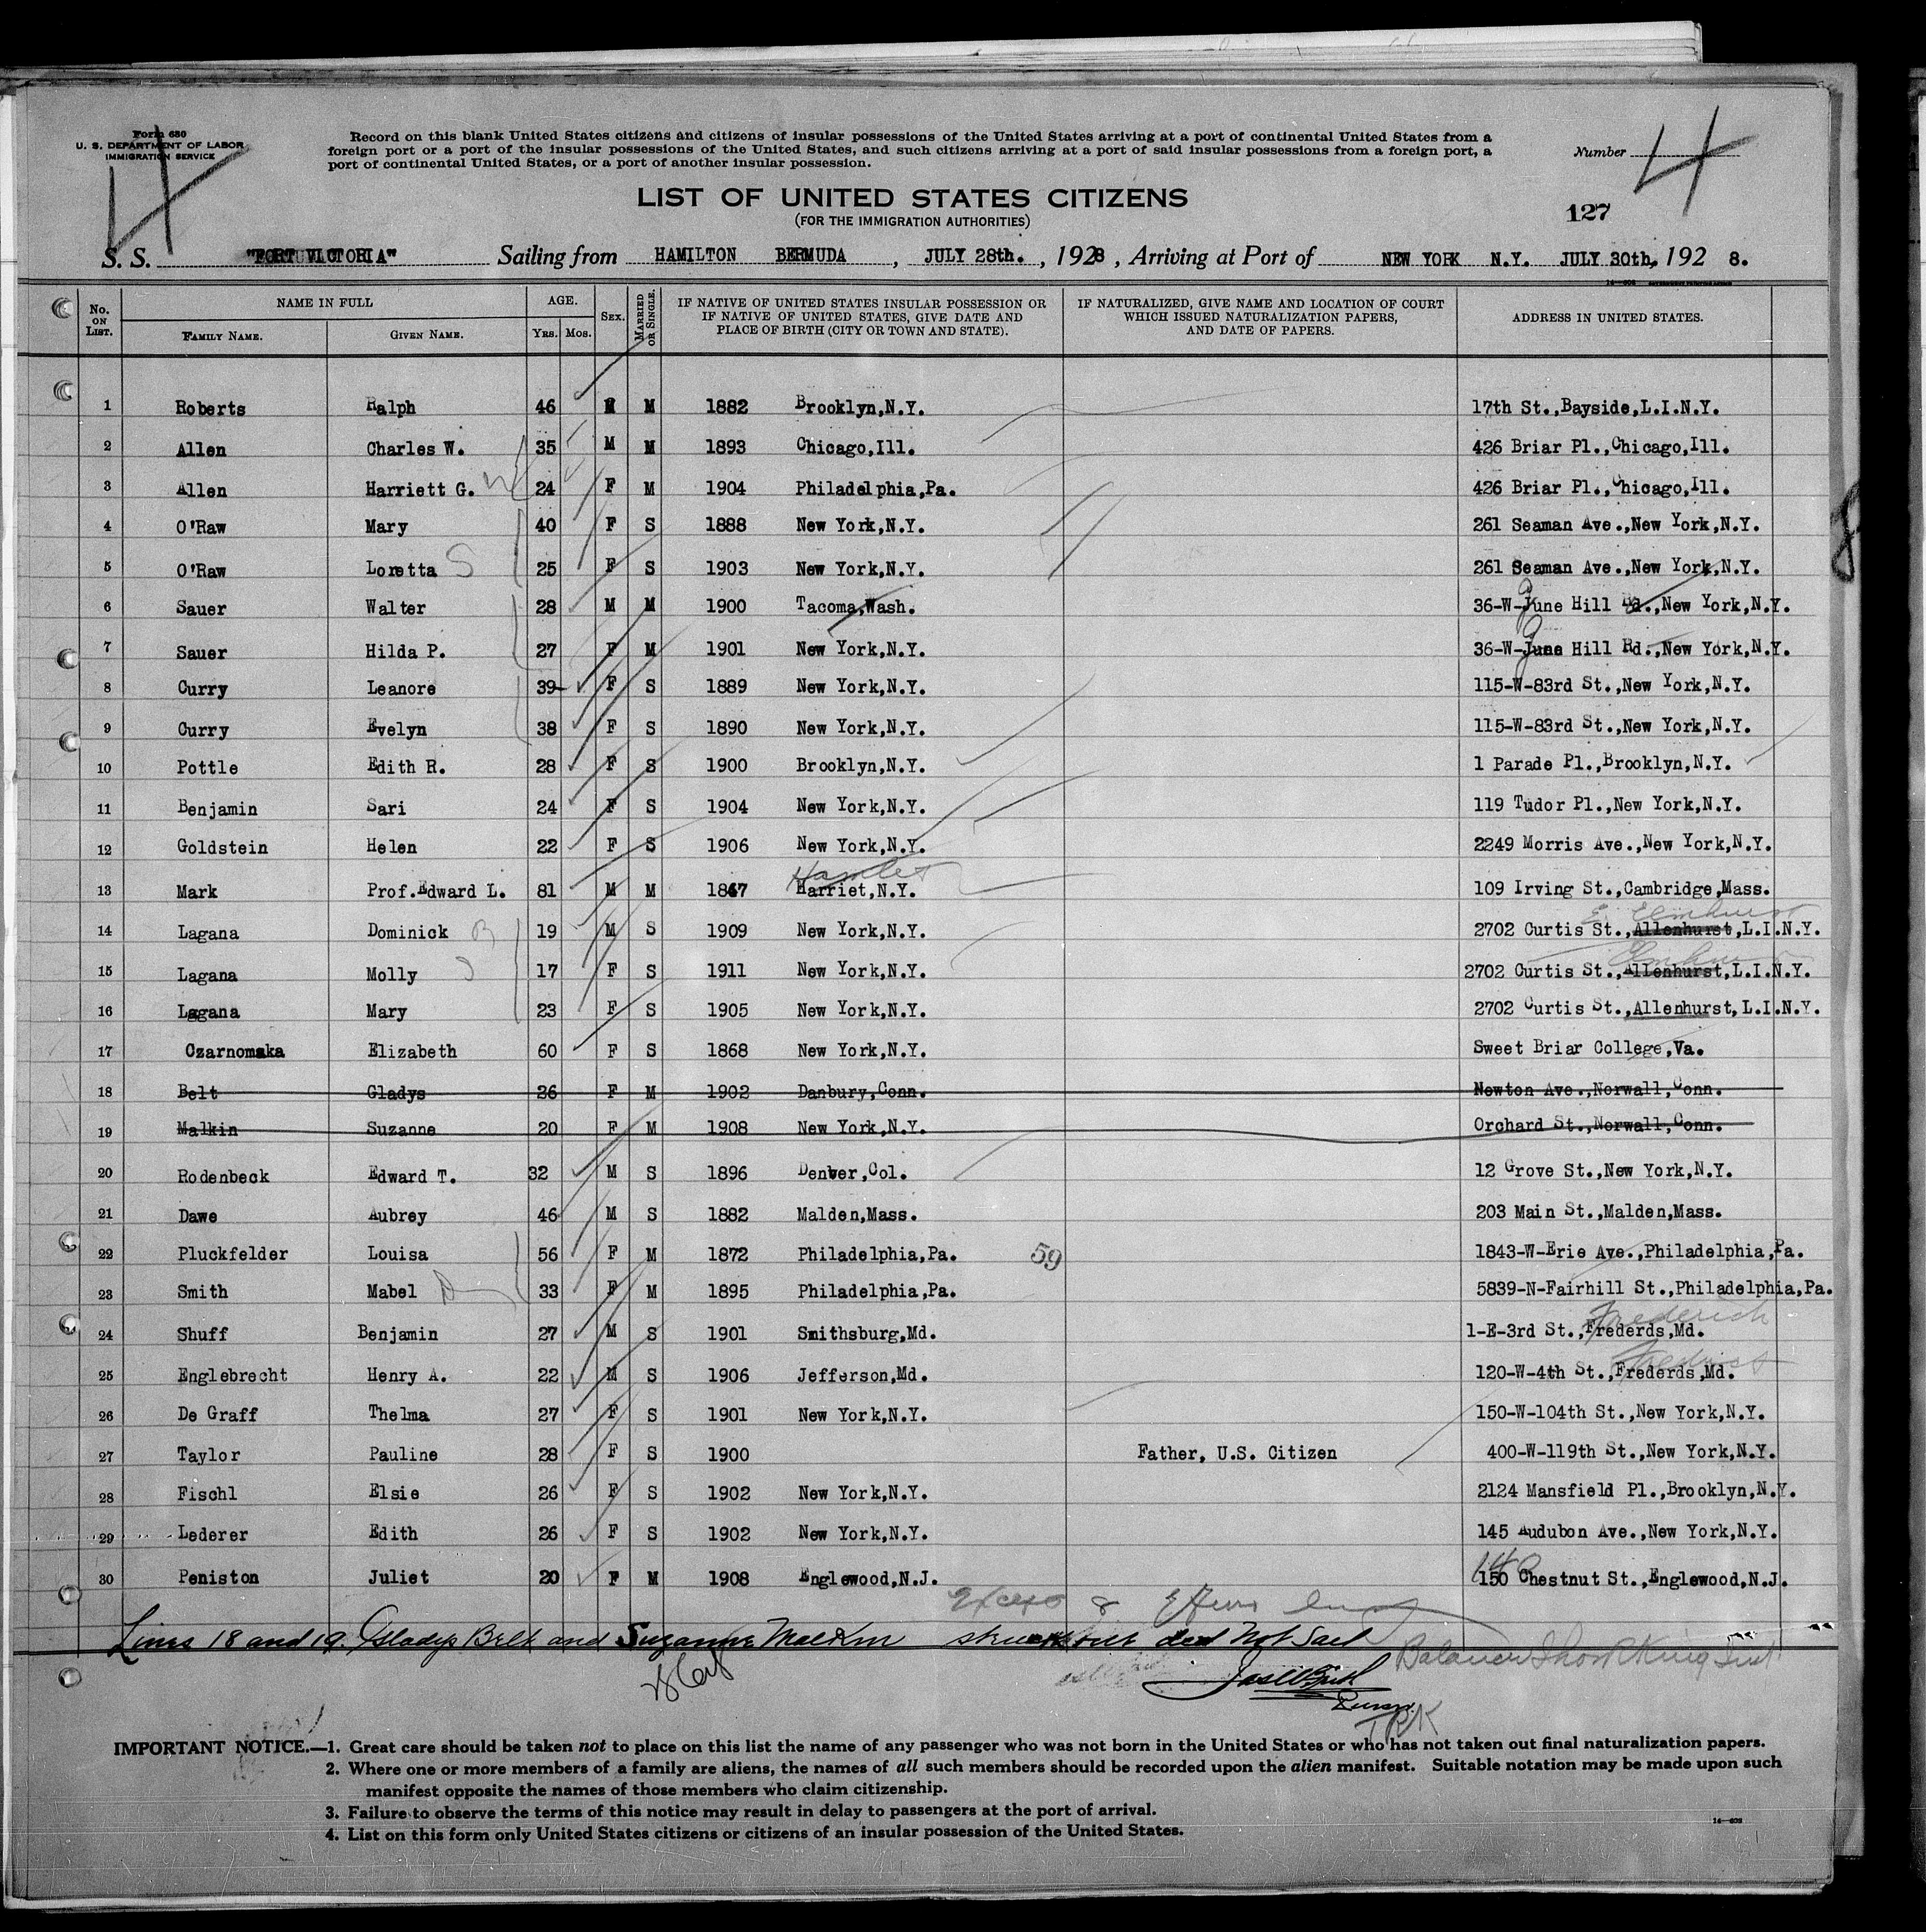 Form 630
U. S. DEPARTMENT OF LABOR
IMMIGRATION SERVICE
Record on this blank United States citizens and citizens of insular possessions of the United States arriving at a port of continental United States from a
foreign port or a port of the insular possessions of the United States, and such citizens arriving at a port of said insular possessions from a foreign port, a
port of continental United States, or a port of another insular possession.
Number 4
4
LIST OF UNITED STATES CITIZENS
(FOR THE IMMIGRATION AUTHORITIES)
127
S. S. "FORT VICTORIA" Sailing from HAMILTON BERMUDA, JULY 28th., 1928, Arriving at Port of NEW YORK N.Y. JULY 30th, 1928.
No. ON LIST. NAME IN FULL FAMILY NAME. GIVEN NAME. AGE. YRS. MOS. SEX. MARRIED OR SINGLE. IF NATIVE OF UNITED STATES INSULAR POSSESSION OR IF NATIVE OF UNITED STATES, GIVE DATE AND PLACE OF BIRTH (CITY OR TOWN AND STATE). IF NATURALIZED, GIVE NAME AND LOCATION OF COURT WHICH ISSUED NATURALIZATION PAPERS, AND DATE OF PAPERS. ADDRESS IN UNITED STATES.
1 Roberts Ralph 46 M M 1882 Brooklyn,N.Y. 17th St.,Bayside,L.I.N.Y.
2 Allen Charles W. 35 M M 1893 Chicago,Ill. 426 Briar Pl.,Chicago,Ill.
3 Allen Harriett G. 24 F M 1904 Philadelphia,Pa. 426 Briar Pl.,Chicago,Ill.
4 O'Raw Mary 40 F S 1888 New York,N.Y. 261 Seaman Ave.,New York,N.Y.
5 O'Raw Loretta S 25 F S 1903 New York,N.Y. 261 Seaman Ave.,New York,N.Y.
6 Sauer Walter 28 M M 1900 Tacoma,Wash. 36-W-June Hill Rd.,New York,N.Y.
7 Sauer Hilda P. 27 F M 1901 New York,N.Y. 36-W-June Hill Rd.,New York,N.Y.
8 Curry Leanore 39 F S 1889 New York,N.Y. 115-W-83rd St.,New York,N.Y.
9 Curry Evelyn 38 F S 1890 New York,N.Y. 115-W-83rd St.,New York,N.Y.
10 Pottle Edith R. 28 F S 1900 Brooklyn,N.Y. 1 Parade Pl.,Brooklyn,N.Y.
11 Benjamin Sari 24 F S 1904 New York,N.Y. 119 Tudor Pl.,New York,N.Y.
12 Goldstein Helen 22 F S 1906 New York,N.Y. 2249 Morris Ave.,New York,N.Y.
Hamlet
13 Mark Prof.Edward L. 81 M M 1847 Harriet,N.Y. 109 Irving St.,Cambridge,Mass.
E. Elmhurst
14 Lagana Dominick 19 M S 1909 New York,N.Y. 2702 Curtis St.,Allenhurst,L.I.N.Y.
Elmhurst
15 Lagana Molly 17 F S 1911 New York,N.Y. 2702 Curtis St.,Allenhurst,L.I.N.Y.
16 Lagana Mary 23 F S 1905 New York,N.Y. 2702 Curtis St.,Allenhurst,L.I.N.Y.
17 Czarnomska Elizabeth 60 F S 1868 New York,N.Y. Sweet Briar College,Va.
18 Belt Gladys 26 F M 1902 Danbury,Conn. Newton Ave.,Norwall,Conn.
19 Malkin Suzanne 20 F M 1908 New York,N.Y. Orchard St.,Norwall,Conn.
20 Rodenbeck Edward T. 32 M S 1896 Denver,Col. 12 Grove St.,New York,N.Y.
21 Dawe Aubrey 46 M S 1882 Malden,Mass. 203 Main St.,Malden,Mass.
22 Pluckfelder Louisa 56 F M 1872 Philadelphia,Pa. 59 1843-W-Erie Ave.,Philadelphia,Pa.
23 Smith Mabel 33 F M 1895 Philadelphia,Pa. 5839-N-Fairhill St.,Philadelphia,Pa.
Frederick
24 Shuff Benjamin 27 M S 1901 Smithsburg,Md. 1-E-3rd St.,Frederds,Md.
25 Englebrecht Henry A. 22 M S 1906 Jefferson,Md. 120-W-4th St.,Frederds,Md.
26 De Graff Thelma 27 F S 1901 New York,N.Y. 150-W-104th St.,New York,N.Y.
27 Taylor Pauline 28 F S 1900 Father, U.S. Citizen 400-W-119th St.,New York,N.Y.
28 Fischl Elsie 26 F S 1902 New York,N.Y. 2124 Mansfield Pl.,Brooklyn,N.Y.
29 Lederer Edith 26 F S 1902 New York,N.Y. 145 Audubon Ave.,New York,N.Y.
30 Peniston Juliet 20 F M 1908 Englewood,N.J. 150 Chestnut St.,Englewood,N.J.
Lines 18 and 19. Gladys Belt and Suzanne Malkin struck out did Not Sail
Purser.
IMPORTANT NOTICE.—1. Great care should be taken not to place on this list the name of any passenger who was not born in the United States or who has not taken out final naturalization papers.
2. Where one or more members of a family are aliens, the names of all such members should be recorded upon the alien manifest. Suitable notation may be made upon such
manifest opposite the names of those members who claim citizenship.
3. Failure to observe the terms of this notice may result in delay to passengers at the port of arrival.
4. List on this form only United States citizens or citizens of an insular possession of the United States.